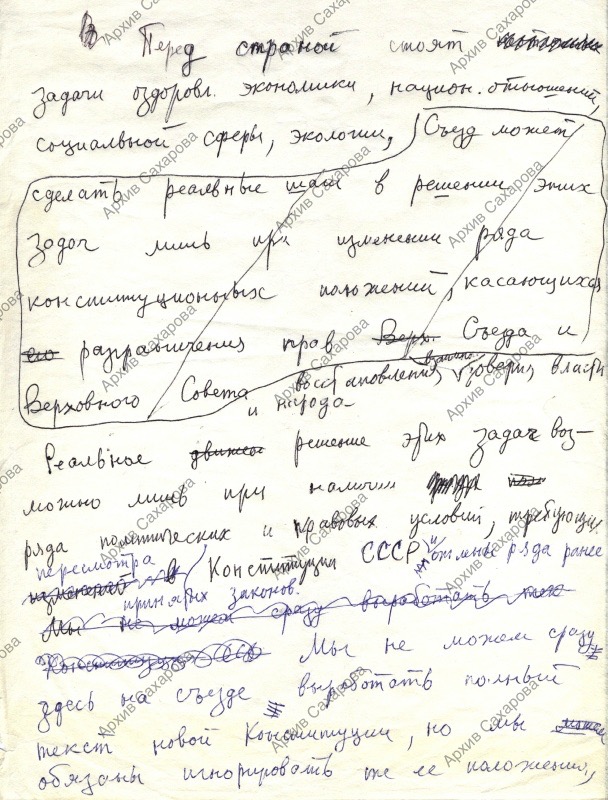 Перед страной стоят
задачи оздоровл. экономики, национ. отношений,
социальной сферы, экологии, Съезд может
сделать реальные шаги в решении этих
задач лишь при изменении ряда
конституционных положений, касающихся
его разграничения прав Верх. Съезда и
Верховного Совета восстановления взаимн. доверия власти
и народа
Реальное движе решение этих задач воз-
можно лишь при наличии
ряда политических и правовых условий, требующих
пересмотра Конституции СССР и отмены ряда ранее
изменений в
принятых законов.
Мы не можем сразу выработать
Конституцию СССР Мы не можем сразу
здесь на съезде выработать полный
текст новой Конституции, но мы можем
обязаны игнорировать же ее положения,
Архив Сахарова